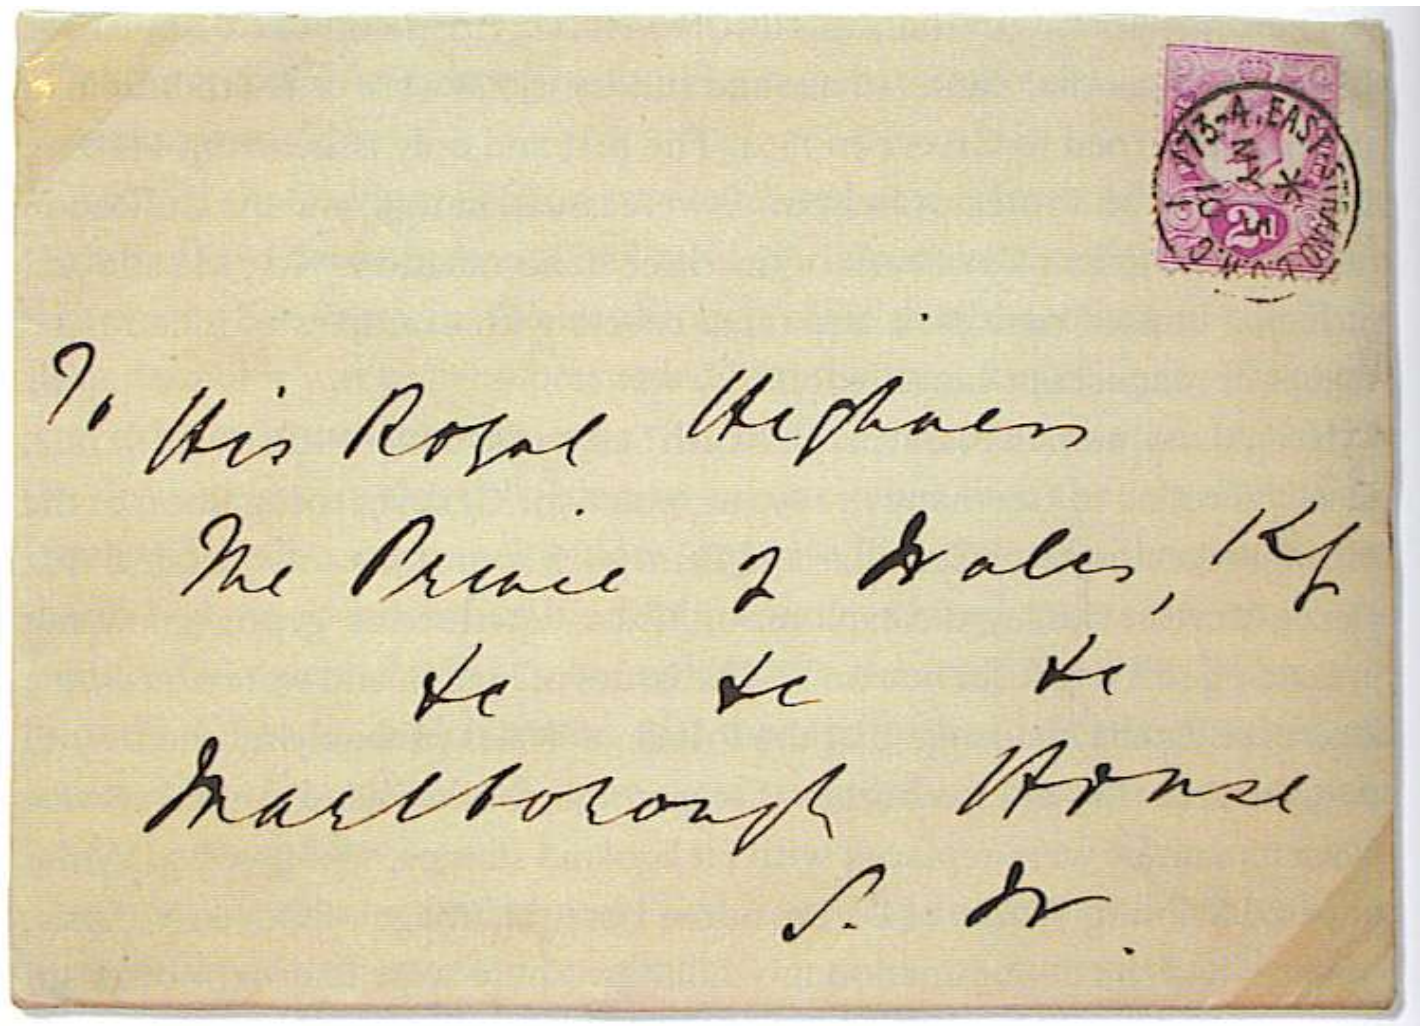 173-A, EAST STRAND W.C
MY 5
10
2d
To His Royal Highness
The Prince of Wales, KG
&c &c &c
Marlborough House
S. W.